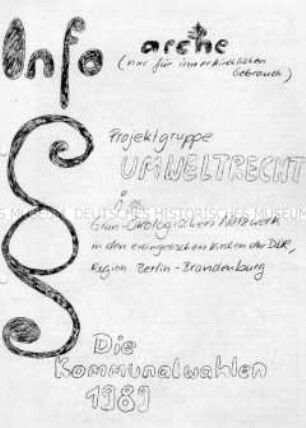 Info
arche
(nur für innerkirchlichen
Gebrauch)
Projektgruppe
UMWELTRECHT
im
Grün-Ökologischen Netzwerk
in den evangelischen Kirchen der DDR,
Region Berlin-Brandenburg
DEUTSCHES HISTORISCHES MUSEUM
Die
Kommunalwahlen
1989